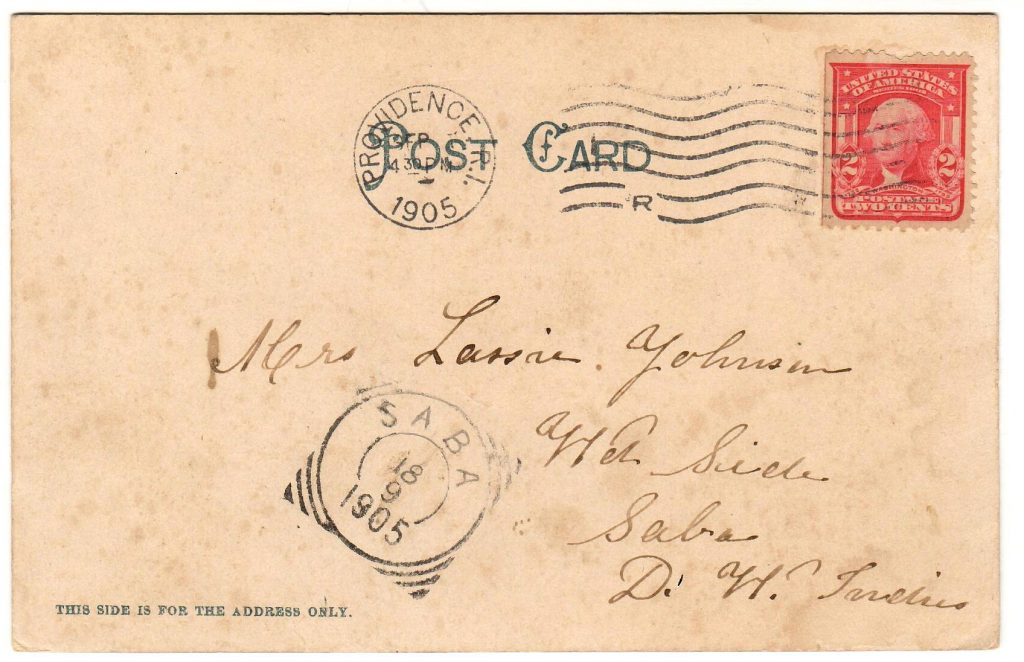 POST CARD
PROVIDENCE, R.I.
SEP
4 30 PM
1905
R
UNITED STATES
OF AMERICA
2 2
POSTAGE
TWO CENTS
Mrs Lassie Johnson
Wd Side
Saba
D. W. Indies
SABA
18
9
1905
THIS SIDE IS FOR THE ADDRESS ONLY.